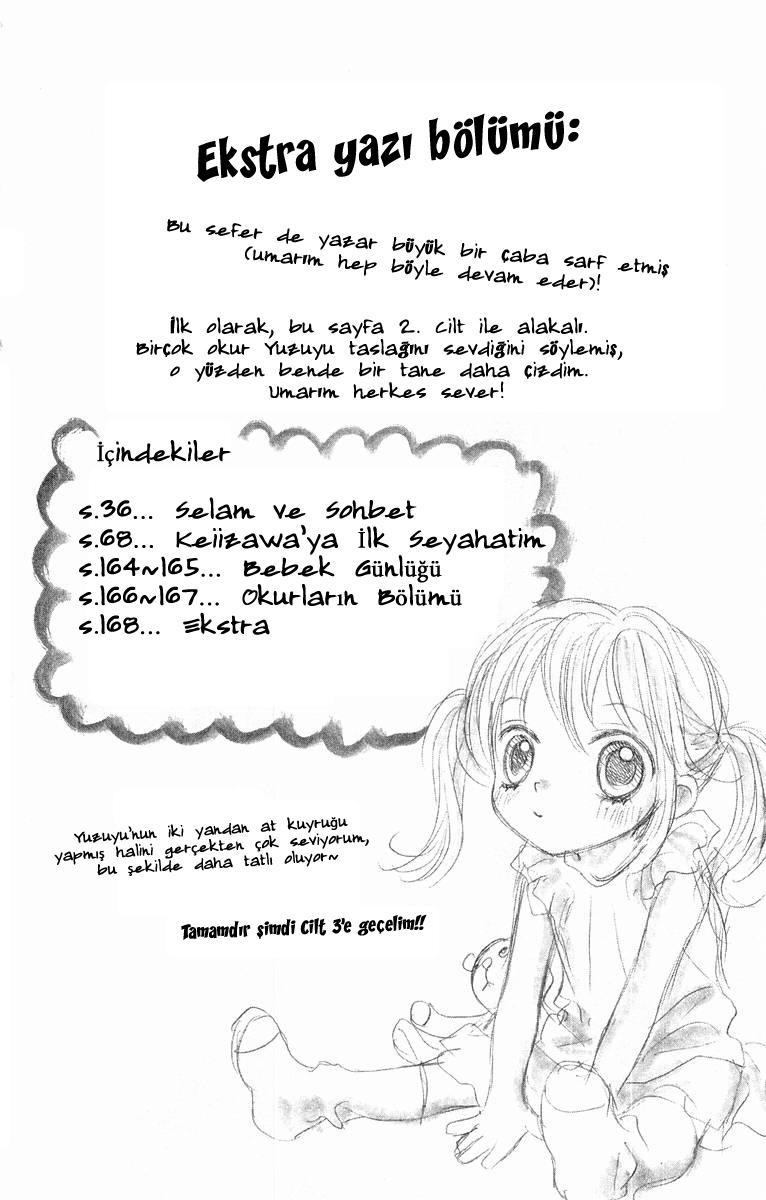 Ekstra yazı bölümü:
Bu sefer de yazar büyük bir çaba sarf etmiş
(umarım hep böyle devam eder)!
İlk olarak, bu sayfa 2. Cilt ile alakalı.
Birçok okur Yuzuyu taslağını sevdiğini söylemiş,
o yüzden bende bir tane daha çizdim.
Umarım herkes sever!
İçindekiler
s.36... Selam ve Sohbet
s.68... Keiizawa'ya İlk Seyahatim
s.164~165... Bebek Günlüğü
s.166~167... Okurların Bölümü
s.168... Ekstra
Yuzuyu'nun iki yandan at kuyruğu
yapmış halini gerçekten çok seviyorum,
bu şekilde daha tatlı oluyor~
Tamamdır şimdi Cilt 3'e geçelim!!